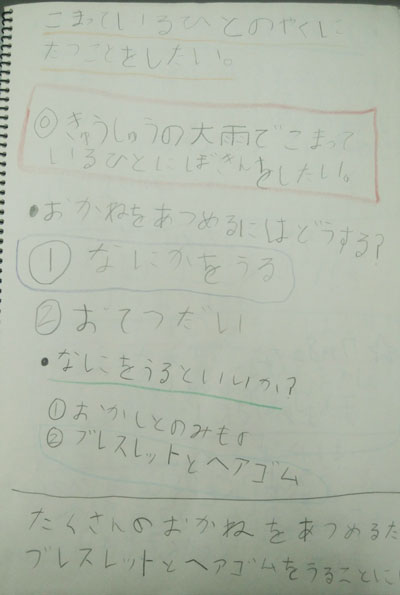 こまっているひとのやくに
たつことをしたい。
⓪きゅうしゅうの大雨でこまって
いるひとにぼきんをしたい。
•おかねをあつめるにはどうする？
①なにかをうる
②おてつだい
•なにをうるといいか？
①おかしとのみもの
②ブレスレットとヘアゴム
たくさんのおかねをあつめるた
ブレスレットとヘアゴムをうることに